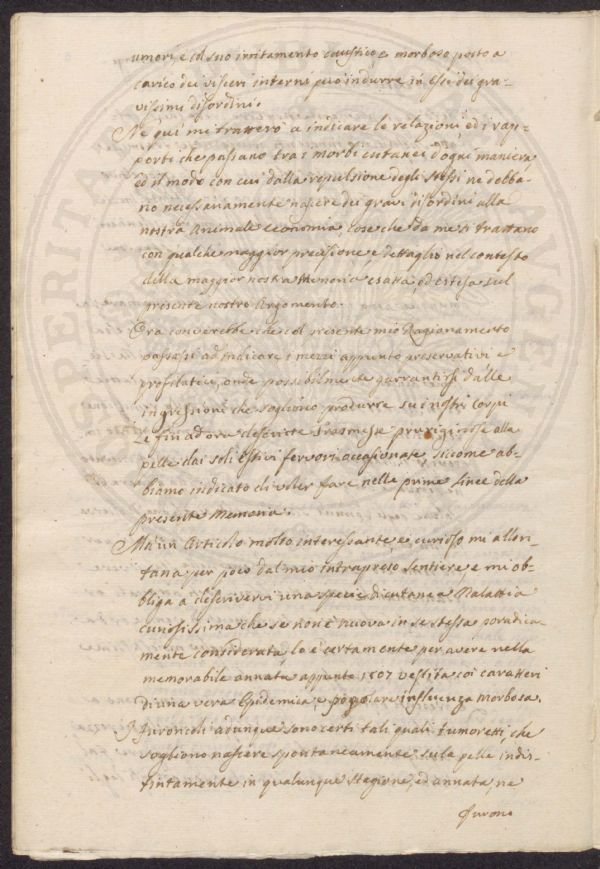 umori, e col suo irritamento caustico, e morboso posto a
carico dei visceri interni può indurre in essi dei gra-
vissimi disordini.
Ne qui mi tratterò a indicare le relazioni, ed i rap-
porti che passano tra i morbi cutanei d'ogni maniera,
ed il modo con cui dalla repulsione degli stessi ne debba-
no necessariamente nascere dei gravi disordini alla
nostra Animale economia, cose che da me si trattano
con qualche maggior precisione, e dettaglio nel contesto
della maggior nostra Memoria esatta ed estesa sul
presente nostro Argomento.
Ora converrebbe che col presente mio Ragionamento
passassi ad indicare i mezzi appunto preservativi e
profilatici, onde possibilmente garrantirsi dalle
ingressioni che sogliono produrre su i nostri corpi
Le fin ad ora descritte pruriginose alla
pelle dai soli Estivi fervori occasionate, siccome ab-
biamo indicato di voler fare nelle prime Linee della
presente Memoria.
Ma un Articolo molto interessante, e curioso mi allon-
tana per poco dal mio intrapreso sentiere, e mi ob-
bliga a descrivervi una specie di cutanea Malattia
curiosissima che se non è nuova in se stessa
mente considerata, lo è certamente per avere nella
memorabile annata appunto 1807 vestita coi caratteri
di una vera Epidemica, e popolare influenza morbosa.
I furoncoli adunque sono certi tali quali tumoretti, che
sogliono nascere spontaneamente sula pelle indis-
tintamente in qualunque Stagione, ed annata, ne
furon: